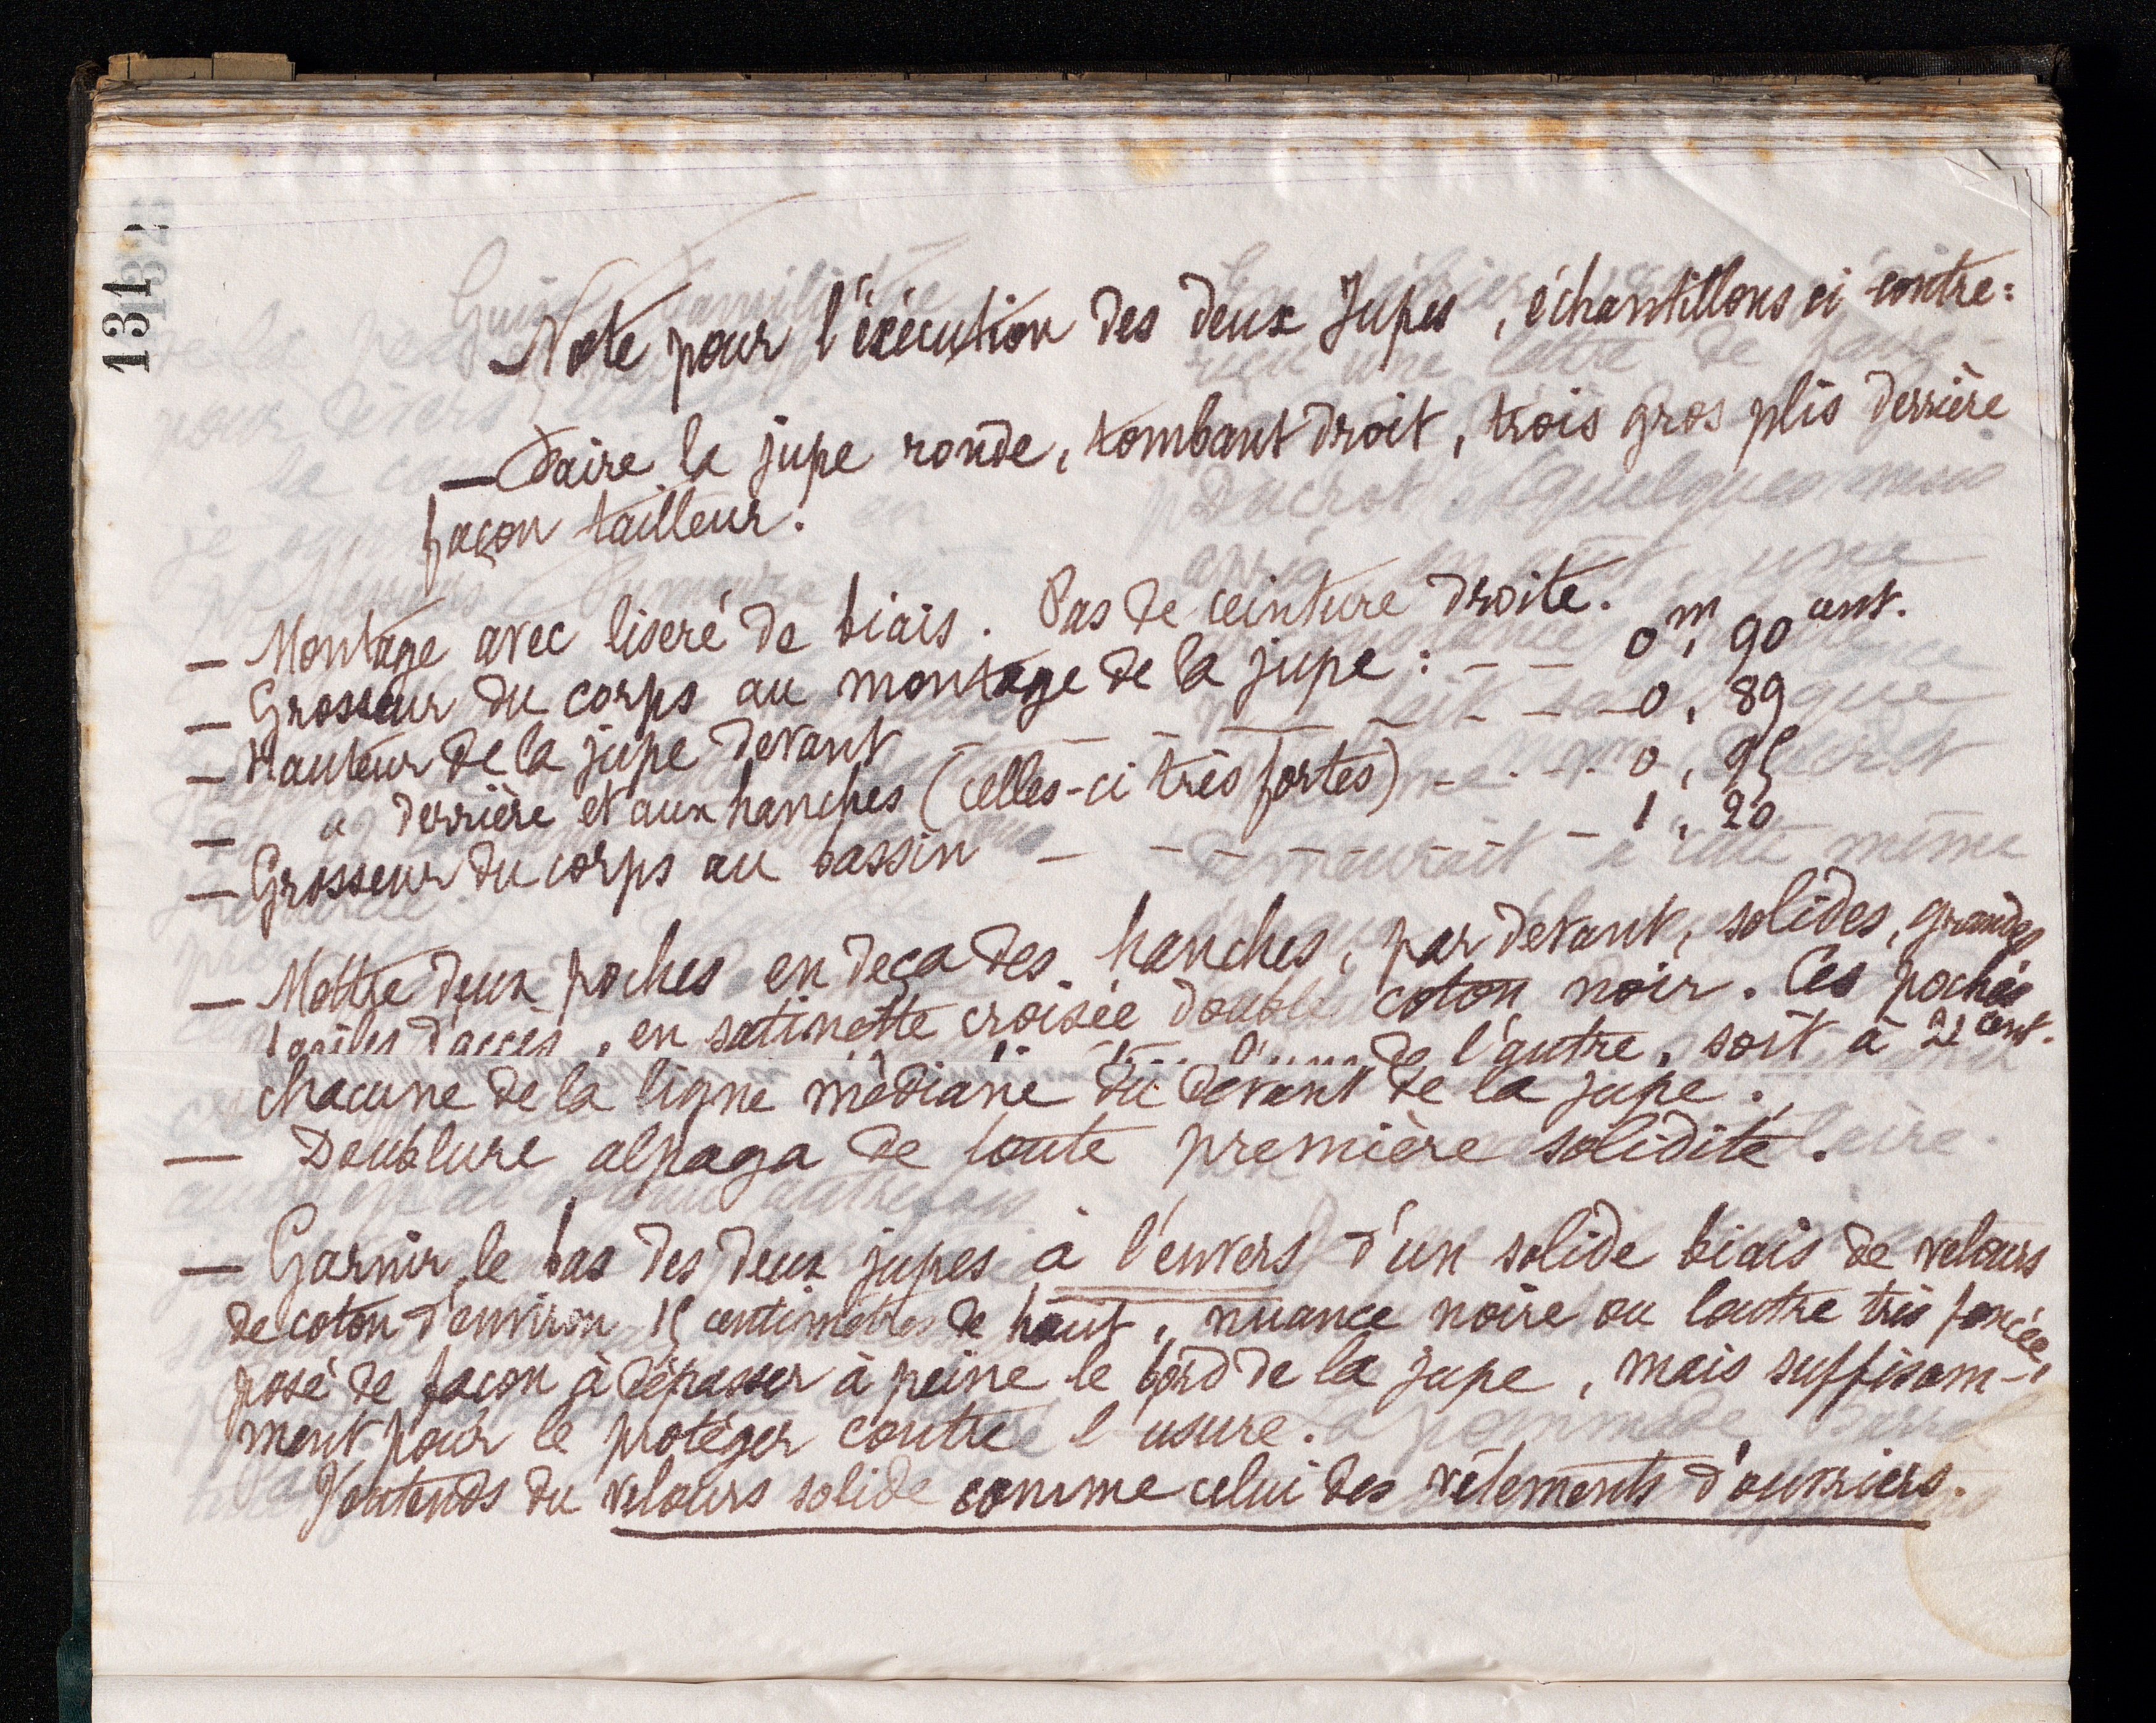 131
Note pour l'éxécution des deux Jupes, échantillons ci-contre:
— Faire la jupe ronde, tombant droit, trois gros plis derrière
façon tailleur.
— Montage avec liseré de biais. Pas de ceinture droite.
— Grosseur du corps au montage de la jupe : — — 0m, 90 cent.
— Hauteur de la jupe devant — — — — — — 0, 89
— " derrière et aux hanches (celles-ci très fortes) — . — . — 0, 95
— Grosseur du corps au bassin — — — — — — — 1, 20
— Mettre deux poches en deça des hanches, par devant, solides, grandes
faciles d'accès, en satinette croisée double coton noir. Ces poches
de l'autre, soit à 21 cent.
chacune de la ligne médiane du devant de la jupe.
— Doublure alpaga de toute première solidité.
— Garnir le bas des deux jupes à l'envers d'un solide biais de velours
de coton d'environ 15 centimètres de haut, nuance noire ou loutre très foncée,
posé de façon à dépasser à peine le bord de la jupe, mais suffisam-
ment pour le protéger contre l'usure.
J'entends du velours solide comme celui des vêtements d'ouvriers.